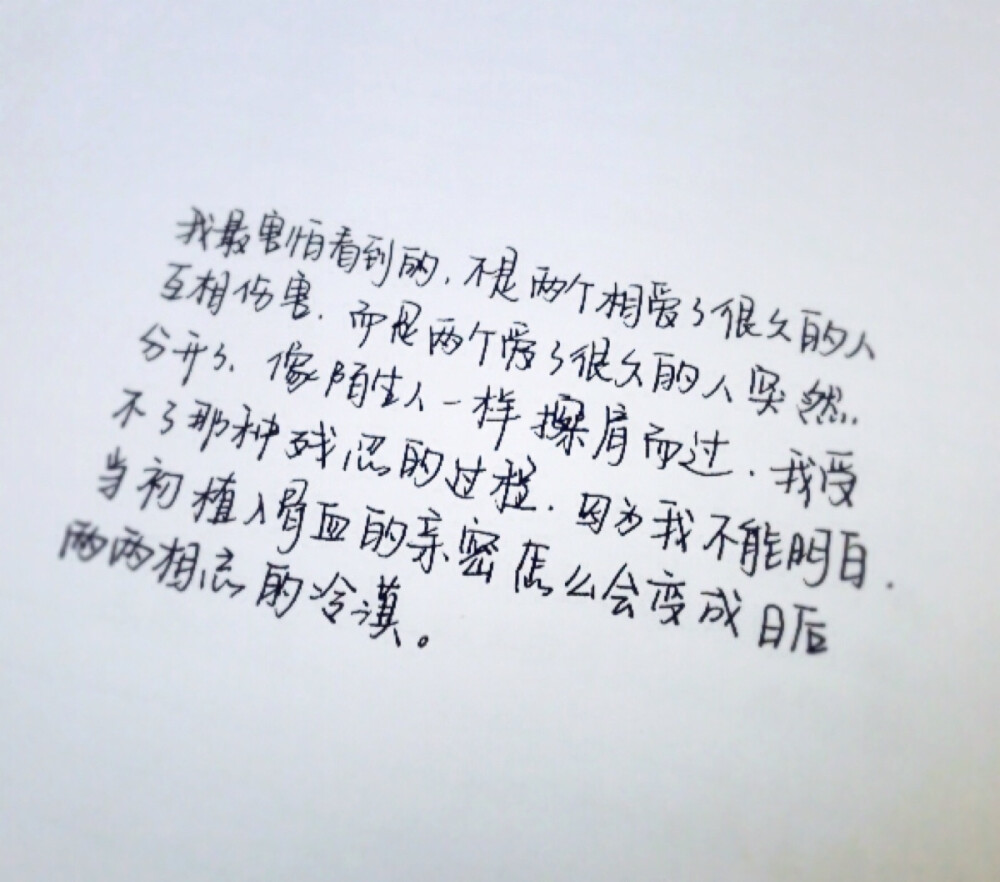 我最害怕看到的，不是两个相爱了很久的人
互相伤害，而是两个爱了很久的人突然
分开了，像陌生人一样擦肩而过。我受
不了那种残忍的过程，因为我不能明白，
当初植入骨血的亲密怎么会变成日后
两两相忘的冷漠。